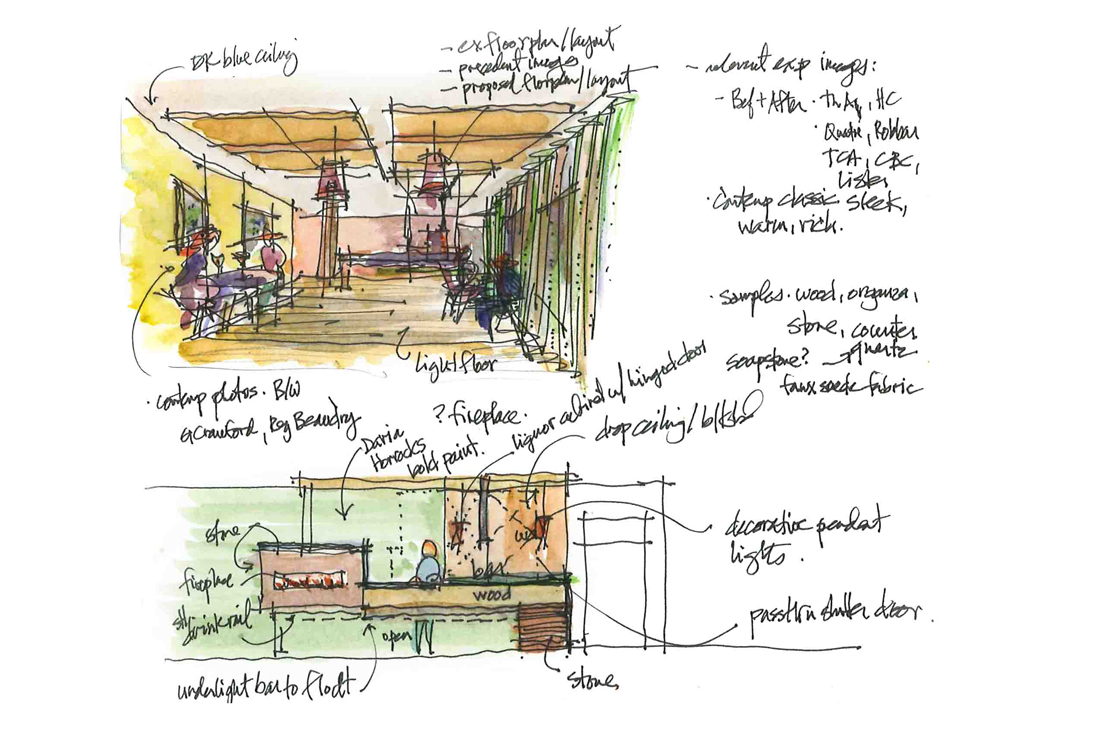 DK blue ceiling
- ex floorplan/layout
- precedent images
- proposed floorplan/layout
- relevant exp images:
- Bef + After
HC
TCA, CBC,
contemp classic sleek,
warm, rich.
· samples. wood, organza,
stone, counter
soapstone? → quartz
faux suede fabric
light floor
· contemp photos. B/W
G Crawford, Reg Beaudry
? fireplace.
Daria
bold paint.
liquor cabinet w/ hinged door
drop ceiling/
stone
fireplace
drink rail
underlight bar to float
bar
wood
open
stone
decorative pendant
lights.
passthru shutter door.